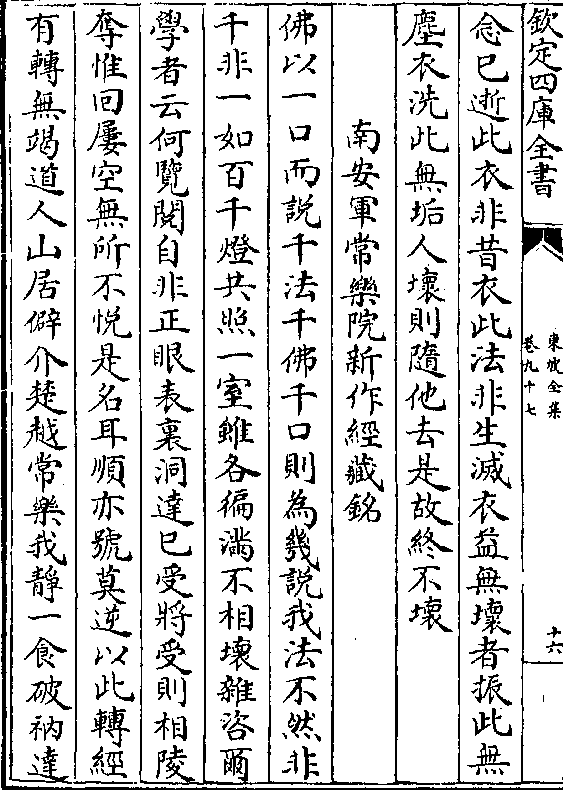 欽定四庫全書
東坡全集
卷九十七
十六
念已逝此衣非昔衣此法非生滅衣益無壞者振此無
塵衣洗此無垢人壞則隨他去是故終不壞
南安軍常樂院新作經藏銘
佛以一口而說千法千佛千口則為幾說我法不然非
千非一如百千燈共照一室雖各徧滿不相壞雜咨爾
學者云何覽閱自非正眼表裏洞達已受將受則相陵
奪惟回屢空無所不悅是名耳順亦號莫逆以此轉經
有轉無竭道人山居僻介楚越常樂我靜一食破衲達